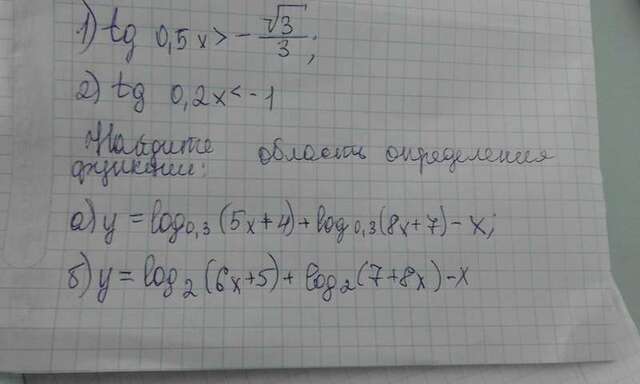 1) tg 0,5x > -√3/3;
2) tg 0,2x < -1
Найдите область определения
функции:
а) y = log₀,₃(5x+4)+log₀,₃(8x+7)-x;
б) y = log₂(6x+5)+log₂(7+8x)-x